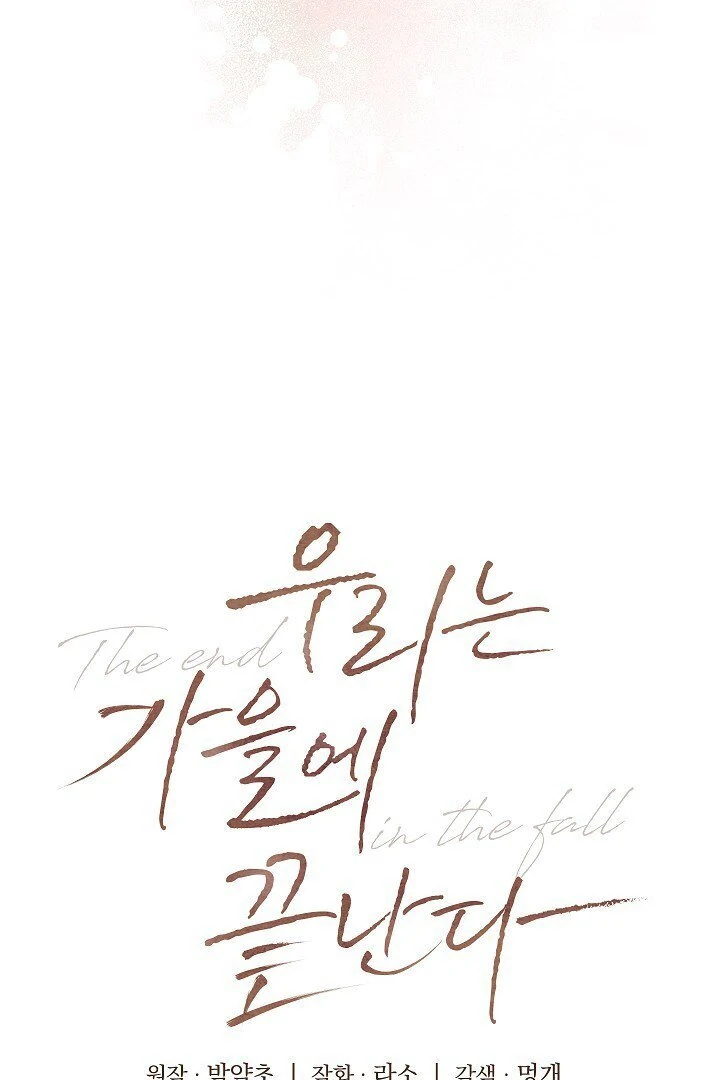 우리는
The end
가을에
in the fall
끝난다
원작 · 박약초 | 작화 · 라소 | 각색 · 멍개